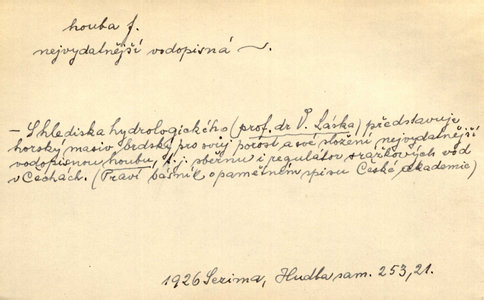 houba f.
nejvydatnější vodopisná ~.
– S hlediska hydrologického (prof. dr V. Láska) představuje
horský masiv brdský pro svůj porost a své složení nejvydatnější
vodopisnou houbu, t. j. sběrnu i regulátor srážkových vod
v Čechách. (Praví básník o památném spisu České akademie)
1926 Sezima, Hudba sam. 253, 21.